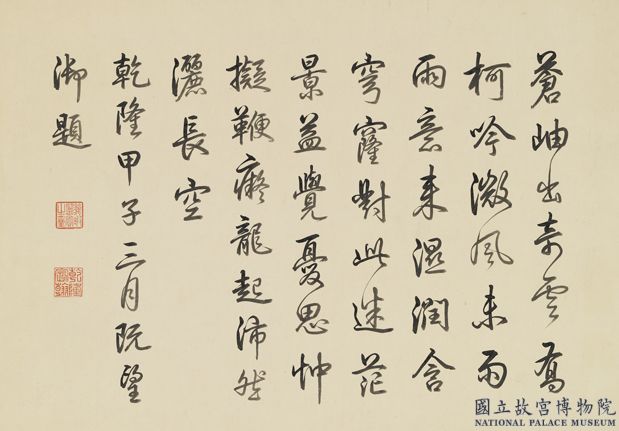 蒼岫出奇雲喬
柯吟微風未雨
雨意来濕潤含
穹窿對此迷茫
景益覺憂思忡
擬鞭癡龍起沛然
灑長空
乾隆甲子三月既望
御題
國立故宮博物院
NATIONAL PALACE MUSEUM